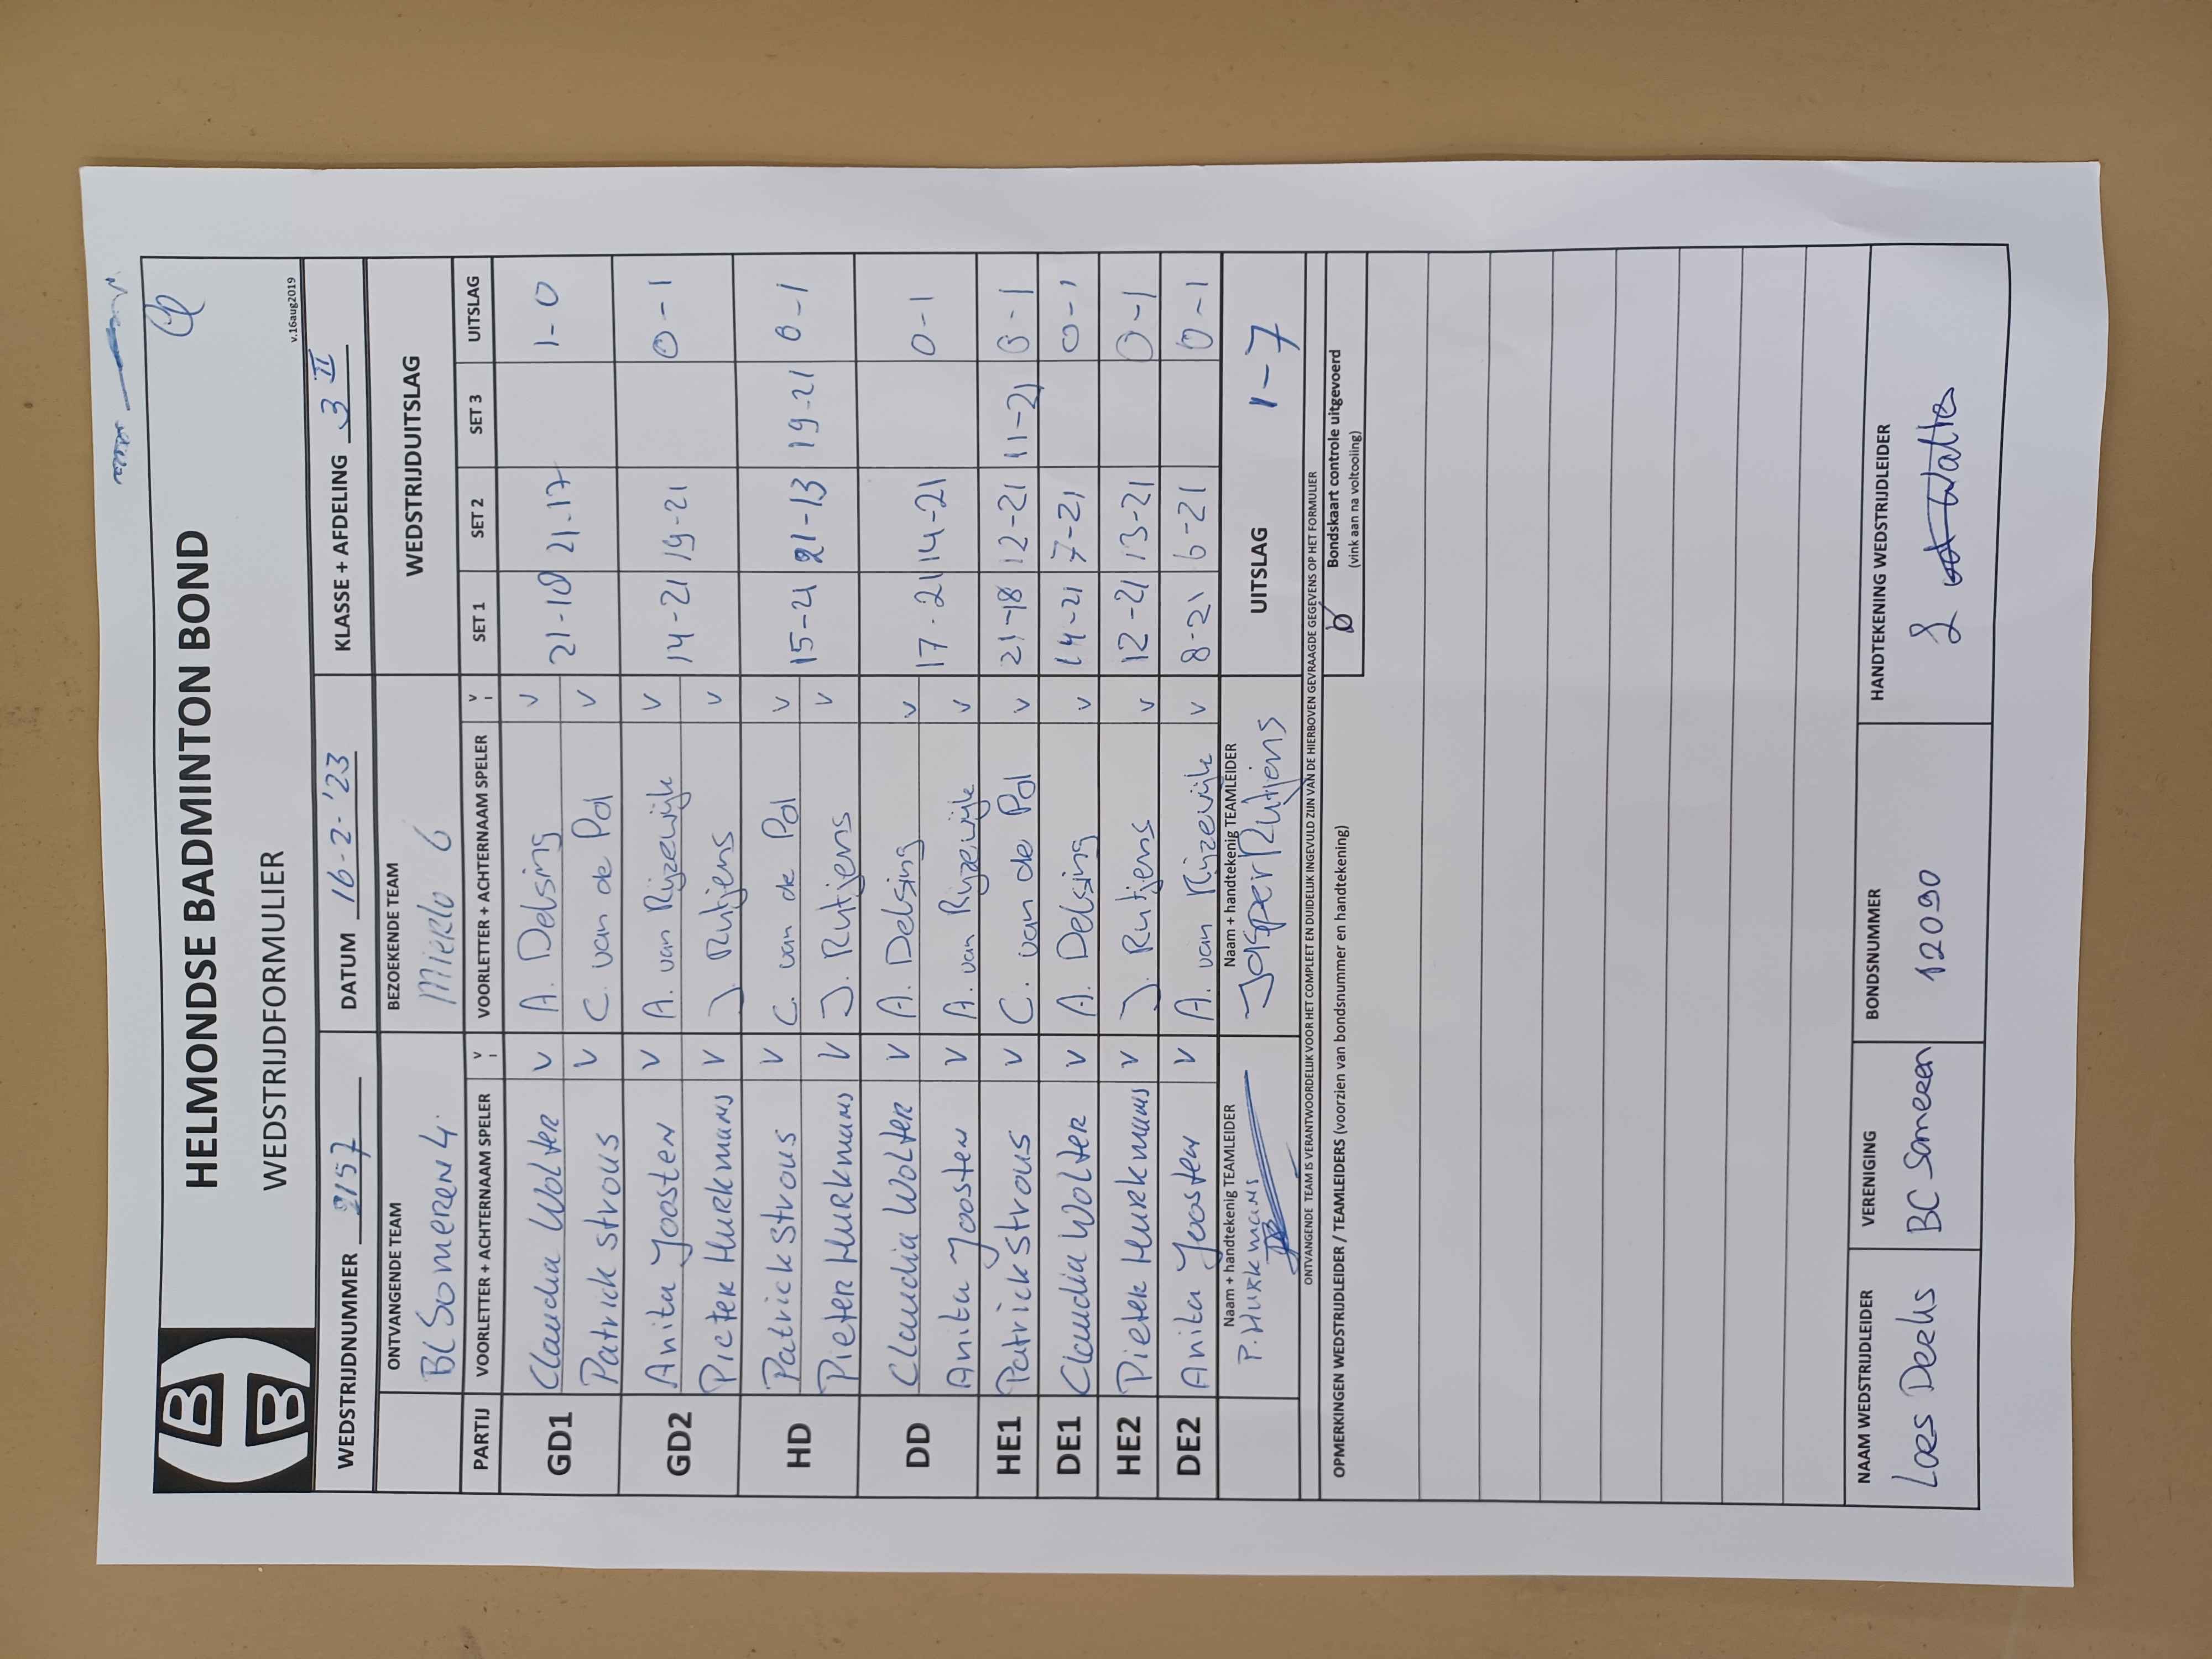 HELMONDSE BADMINTON BOND
WEDSTRIJDFORMULIER
v.16aug2019
WEDSTRIJDNUMMER 2157 DATUM 16-2-'23 KLASSE + AFDELING 3 II
ONTVANGENDE TEAM BEZOEKENDE TEAM WEDSTRIJDUITSLAG
BC Someren 4 Mierlo 6
PARTIJ VOORLETTER + ACHTERNAAM SPELER V VOORLETTER + ACHTERNAAM SPELER V SET 1 SET 2 SET 3 UITSLAG
GD1 Claudia Wolter V A. Delsing V 21-10 21-17 1-0
Patrick Strous V C. van de Pol V
GD2 Anita Joosten V A. van Rijzewijk V 14-21 19-21 0-1
Pieter Hurkmans V J. Rutjens V
HD Patrick Strous V C. van de Pol V 15-21 21-13 19-21 0-1
Pieter Hurkmans V J. Rutjens V
DD Claudia Wolter V A. Delsing V 17-21 14-21 0-1
Anita Joosten V A. van Rijzewijk V
HE1 Patrick Strous V C. van de Pol V 21-18 12-21 11-21 0-1
DE1 Claudia Wolter V A. Delsing V 14-21 7-21 0-1
HE2 Pieter Hurkmans V J. Rutjens V 12-21 13-21 0-1
DE2 Anita Joosten V A. van Rijzewijk V 8-21 6-21 0-1
Naam + handtekenig TEAMLEIDER Naam + handtekenig TEAMLEIDER UITSLAG 1-7
P. Hurkmans Jasper Rutjens
ONTVANGENDE TEAM IS VERANTWOORDELIJK VOOR HET COMPLEET EN DUIDELIJK INGEVULD ZIJN VAN DE HIERBOVEN GEVRAAGDE GEGEVENS OP HET FORMULIER
OPMERKINGEN WEDSTRIJDLEIDER / TEAMLEIDERS (voorzien van bondsnummer en handtekening)
Bondskaart controle uitgevoerd
(vink aan na voltooling)
NAAM WEDSTRIJDLEIDER VERENIGING BONDSNUMMER HANDTEKENING WEDSTRIJDLEIDER
BC Someren 12090